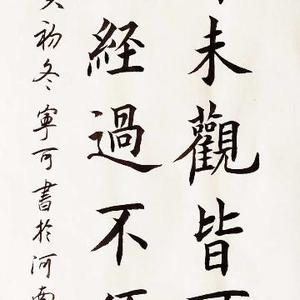 未觀皆可
經過不
初冬寧可書於河南